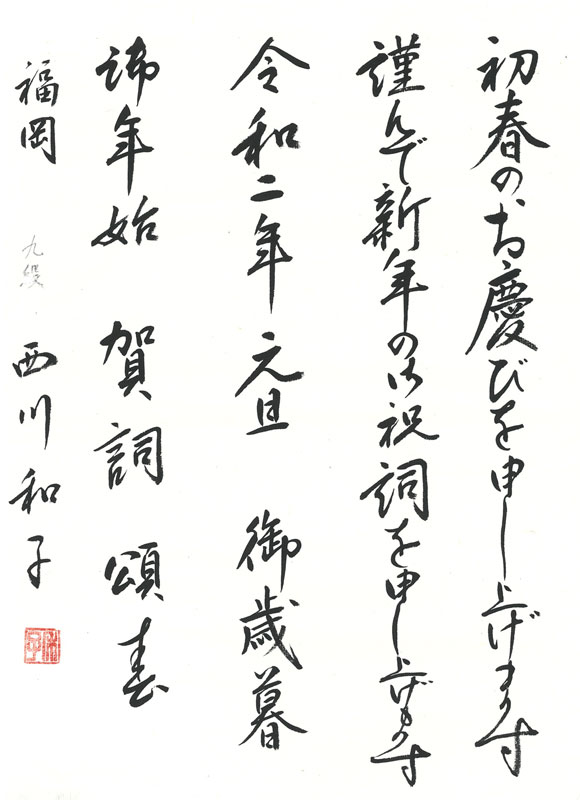 初春のお慶びを申し上げます
謹んで新年の御祝詞を申し上げます
令和二年 元旦 御歳暮
御年始 賀詞 頌春
福岡 九段 西川和子